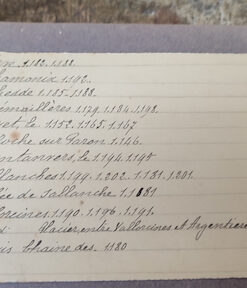 1182.1188.
amonix 1.192.
1.185.1.188.
émaillères 1.179.1.184.1.198.
et, le 1.152.1.165.1.167
oche sur Foron 1.146.
ntanvers, le 1.194.1.195
llanches 1.199.1.202.1.181.1.201.
ée de Sallanche 1.181
1.190.1.196.1.191.
Glacier, entre Vallorcines et Argentiere
is chaine des. 1180